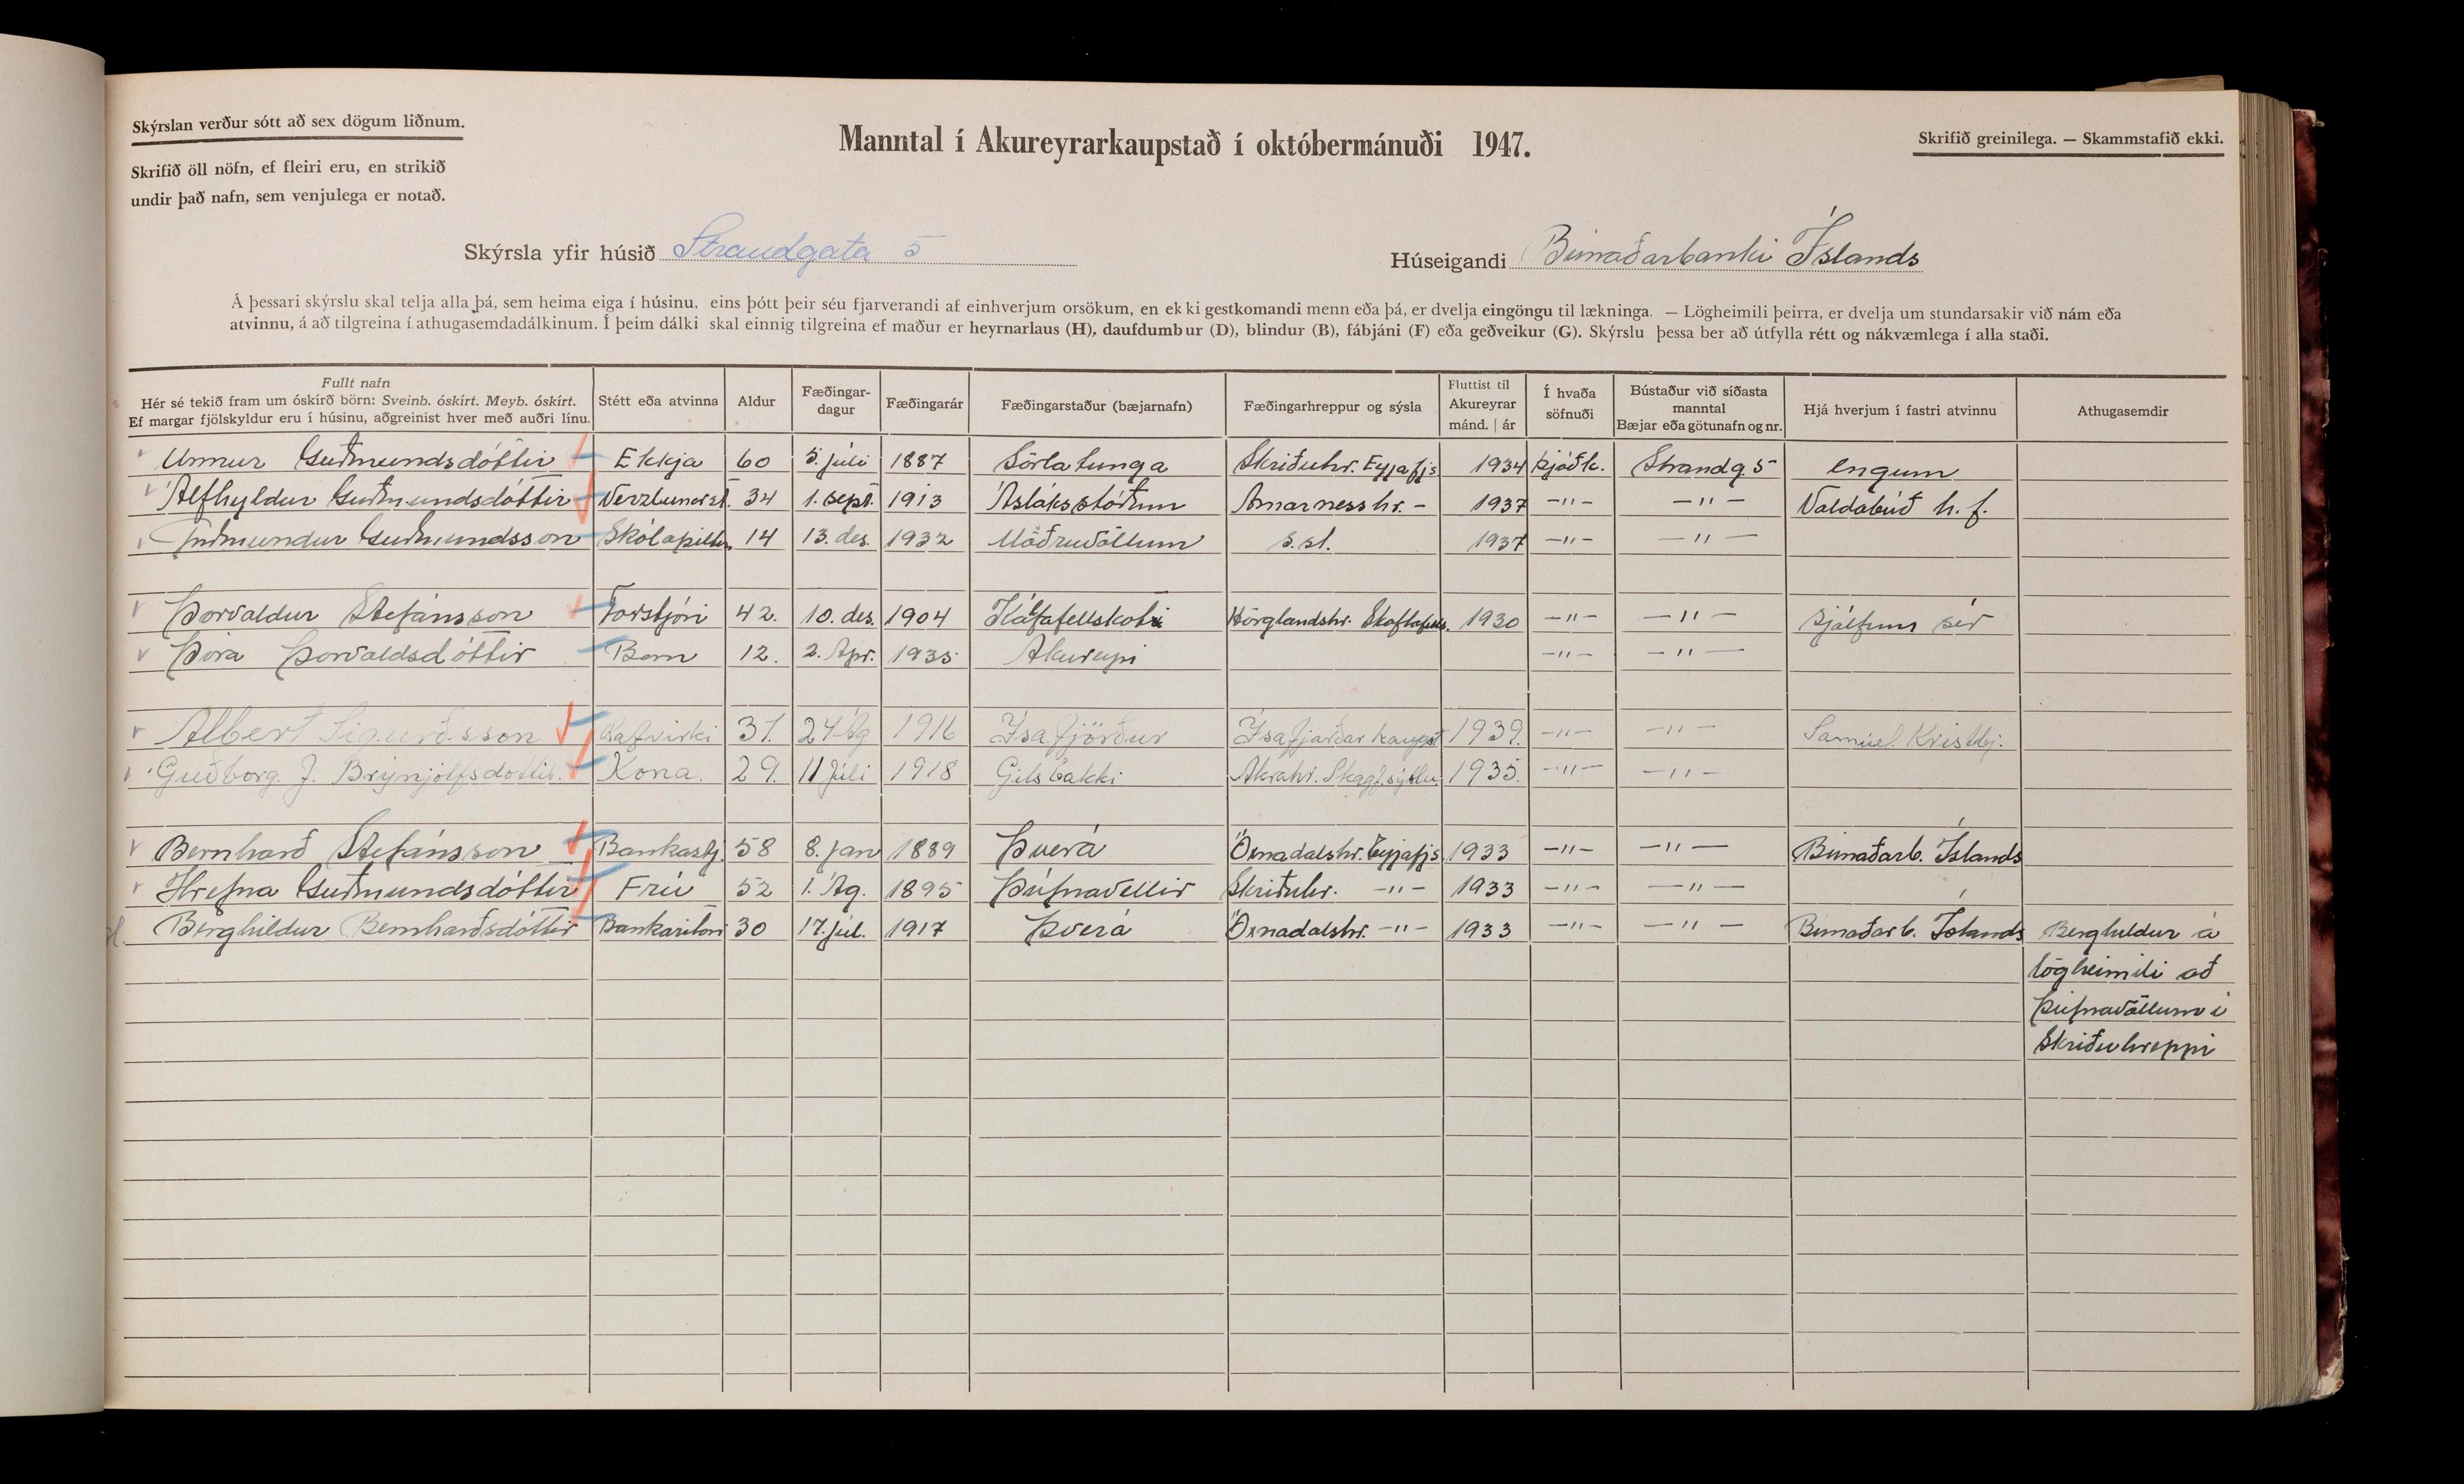 Skýrslan verður sótt að sex dögum liðnum.
Skrifið öll nöfn, ef fleiri eru, en strikið
undir það nafn, sem venjulega er notað.
Manntal í Akureyrarkaupstað í októbermánuði 1947.
Skrifið greinilega. — Skammstafið ekki.
Skýrsla yfir húsið Strandgata 5
Húseigandi Búnaðarbanki Íslands
Á þessari skýrslu skal telja alla þá, sem heima eiga í húsinu. eins þótt þeir séu fjarverandi af einhverjum orsökum, en ekki gestkomandi menn eða þá, er dvelja eingöngu til lækninga. — Lögheimili þeirra, er dvelja um stundarsakir við nám eða
atvinnu, á að tilgreina í athugasemdadálkinum. Í þeim dálki skal einnig tilgreina ef maður er heyrnarlaus (H), daufdumbur (D), blindur (B), fábjáni (F) eða geðveikur (G). Skýrslu þessa ber að útfylla rétt og nákvæmlega í alla staði.
Fullt nafn
Hér sé tekið fram um óskírð börn: Sveinb. óskírt. Meyb. óskírt.
Ef margar fjölskyldur eru í húsinu, aðgreinist hver með auðri línu.
Stétt eða atvinna
Aldur
Fæðingar-
dagur
Fæðingarár
Fæðingarstaður (bæjarnafn)
Fæðingarhreppur og sýsla
Fluttist til
Akureyrar
mánd. | ár
Í hvaða
söfnuði
Bústaður við síðasta
manntal
Bæjar eða götunafn og nr.
Hjá hverjum í fastri atvinnu
Athugasemdir
Unnur Guðmundsdóttir Ekkja 60 5. júlí 1887 Sörlatunga Skriðuhr. Eyjafjs 1934 Þjóðk. Strandg. 5 engum
Álfhyldur Guðmundsdóttir Verzlunarst. 34 1. sept. 1913 Ásláksstöðum Arnarnesshr. - 1937 -"- -"- Valdabúð h.f.
Guðmundur Guðmundsson Skólapiltur 14 13. des. 1932 Möðruvöllum s.st. 1937 -"- -"-
Þorvaldur Stefánsson Forstjóri 42. 10. des. 1904 Kálfafellskoti Hörglandshr. Skaftafells. 1930 -"- -"- sjálfum sér
Þóra Þorvaldsdóttir Barn 12. 2. Apr. 1935 Akureyri -"- -"-
Albert Sigurðsson Rafvirki 31. 24 Ág 1916 Ísafjörður Ísafjarðar kaupst 1939. -"- -"- Samúel Kristbj.
Guðborg J. Brynjólfsdóttir. Kona. 29. 11 Júlí 1918 Gilsbakki Akrahr. Skagf.sýslu. 1935. -"- -"-
Bernharð Stefánsson Bankastj. 58 8. jan 1889 Þverá Öxnadalshr. Eyjafjs 1933 -"- -"- Búnaðarb. Íslands
Hrefna Guðmundsdóttir Frú 52 1. Ág. 1895 Þúfnavellir Skriðuhr. -"- 1933 -"- -"-
Berghildur Bernharðsdóttir Bankaritari 30 17. júl. 1917 Þverá Öxnadalshr. -"- 1933 -"- -"- Búnaðarb. Íslands Berghildur á
lögheimili að
Þúfnavöllum í
Skriðuhreppi